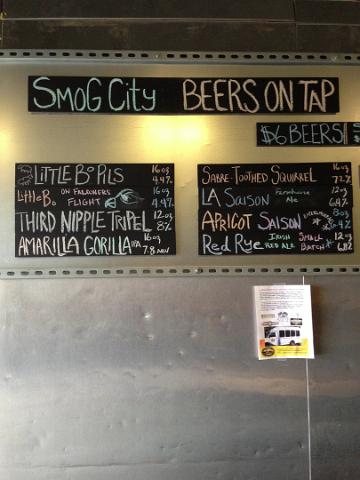 SMOG CITY BEERS ON TAP
$6 BEERS
LITTLE BO PILS 16oz 4.4%
Little Bo ON FALCONERS FLIGHT 16oz 4.4%
THIRD NIPPLE TRIPEL 12oz 8%
AMARILLA GORILLA IPA 16oz 7.8 ABV
SABRE-TOOTHED SQUIRREL 16oz 7.7%
LA SAISON Farmhouse Ale 12oz
APRICOT SAISON 8oz
Red Rye IRISH RED ALE SMALL BATCH 12oz